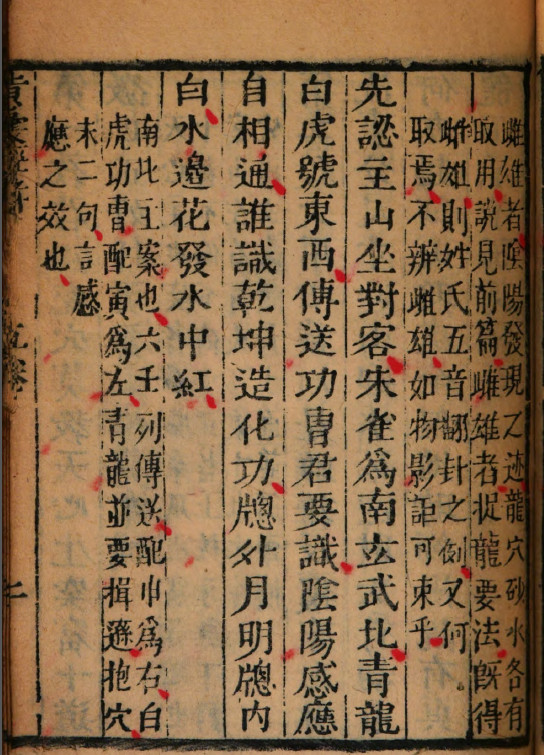 雌雄者陰陽發現之迹龍穴砂水各有
取用說見前篇雌雄者捉龍要法既得
雌雄則姓氏五音翻卦之例又何
取焉不辨雌雄如物影詎可束乎
先認主山坐對客朱雀爲南玄武北青龍
白虎號東西傳送功曹君要識陰陽感應
自相通誰識乾坤造化功牕外月明牕內
白水邊花發水中紅
南北王案也六壬列傳送配申爲右白
虎功曹配寅爲左青龍並要揖遜抱穴
末二句言感
應之效也